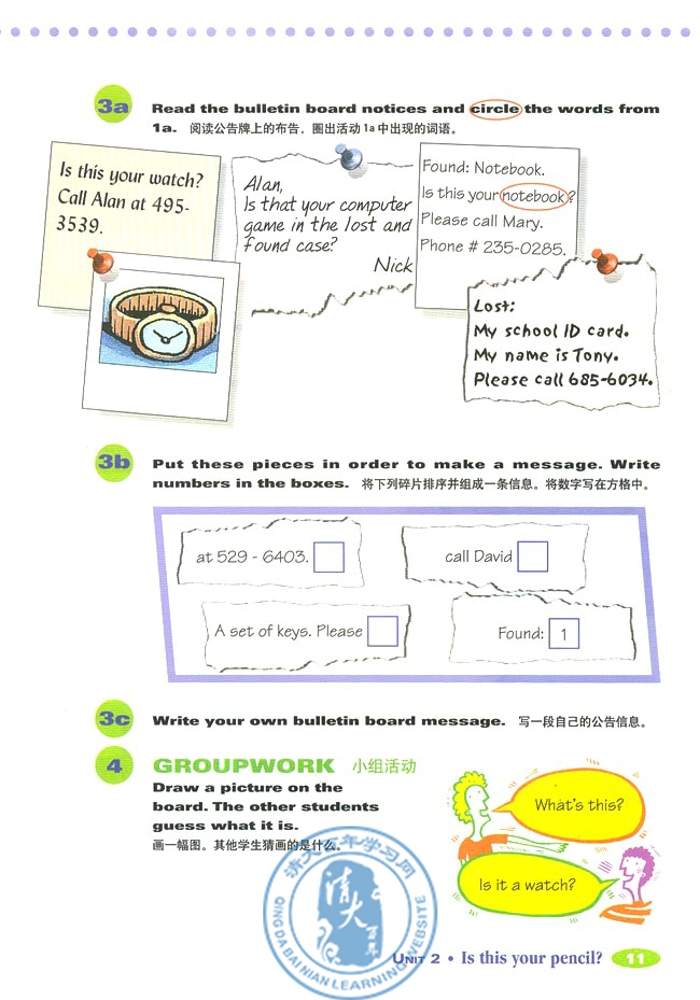 3a Read the bulletin board notices and circle the words from
1a. 阅读公告牌上的布告，圈出活动1a中出现的词语。
Is this your watch?
Call Alan at 495-
3539.
Alan,
Is that your computer
game in the lost and
found case?
Nick
Found: Notebook.
Is this your notebook?
Please call Mary.
Phone # 235-0285.
Lost:
My school ID card.
My name is Tony.
Please call 685-6034.
3b Put these pieces in order to make a message. Write
numbers in the boxes. 将下列碎片排序并组成一条信息。将数字写在方格中。
at 529 - 6403.
call David
A set of keys. Please
Found: 1
3c Write your own bulletin board message. 写一段自己的公告信息。
4 GROUPWORK 小组活动
Draw a picture on the
board. The other students
guess what it is.
画一幅图。其他学生猜画的是什么。
What's this?
Is it a watch?
清大百年学习网
清大百年
QING DA BAI NIAN LEARNING WEBSITE
UNIT 2 • Is this your pencil? 11